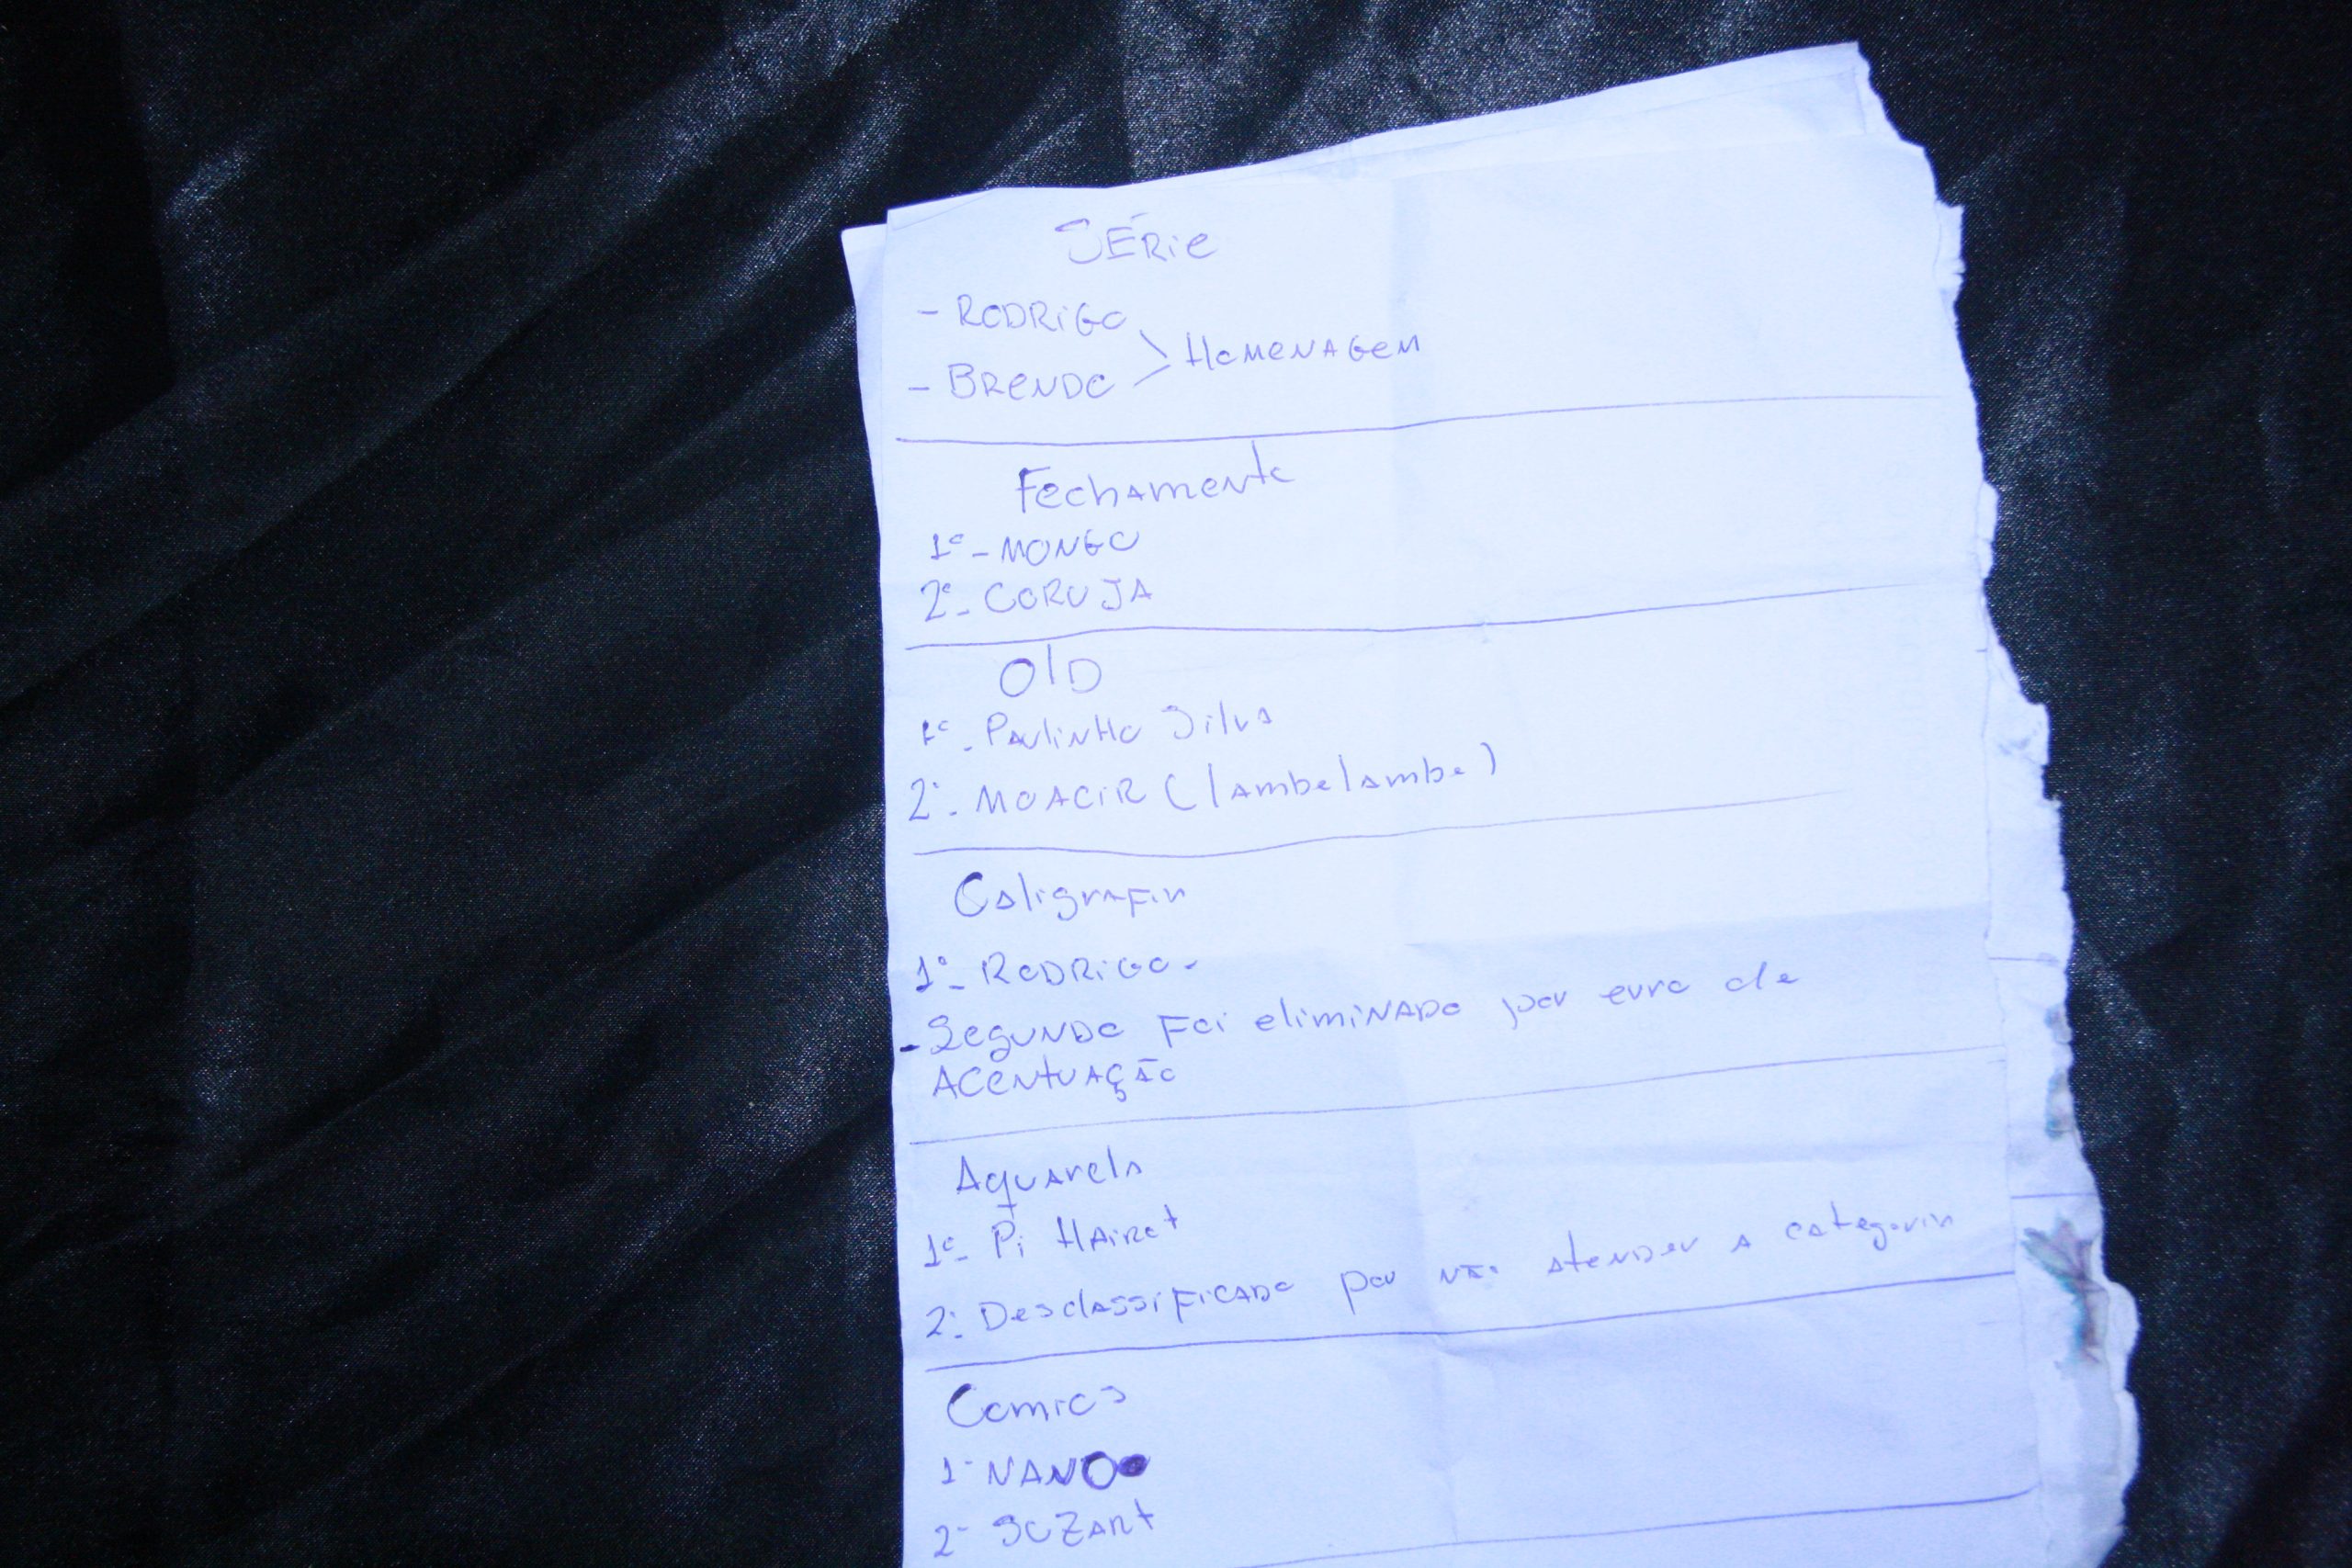 SÉRie
- RODRIGO
- BRENDO > HOMENAGEM
Fechamento
1º - MONGO
2º - CORUJA
OlD
1º - PAulinHo Silva
2º - MOACIR (lambelambe)
Caligrafia
1º - RODRIGO -
- Segundo Foi eliminado por erro de
Acentuação
Aquarela
1º - Pi HAiRot
2º - Desclassificado por não atender a categoria
Comics
1- NANO
2- SOZART